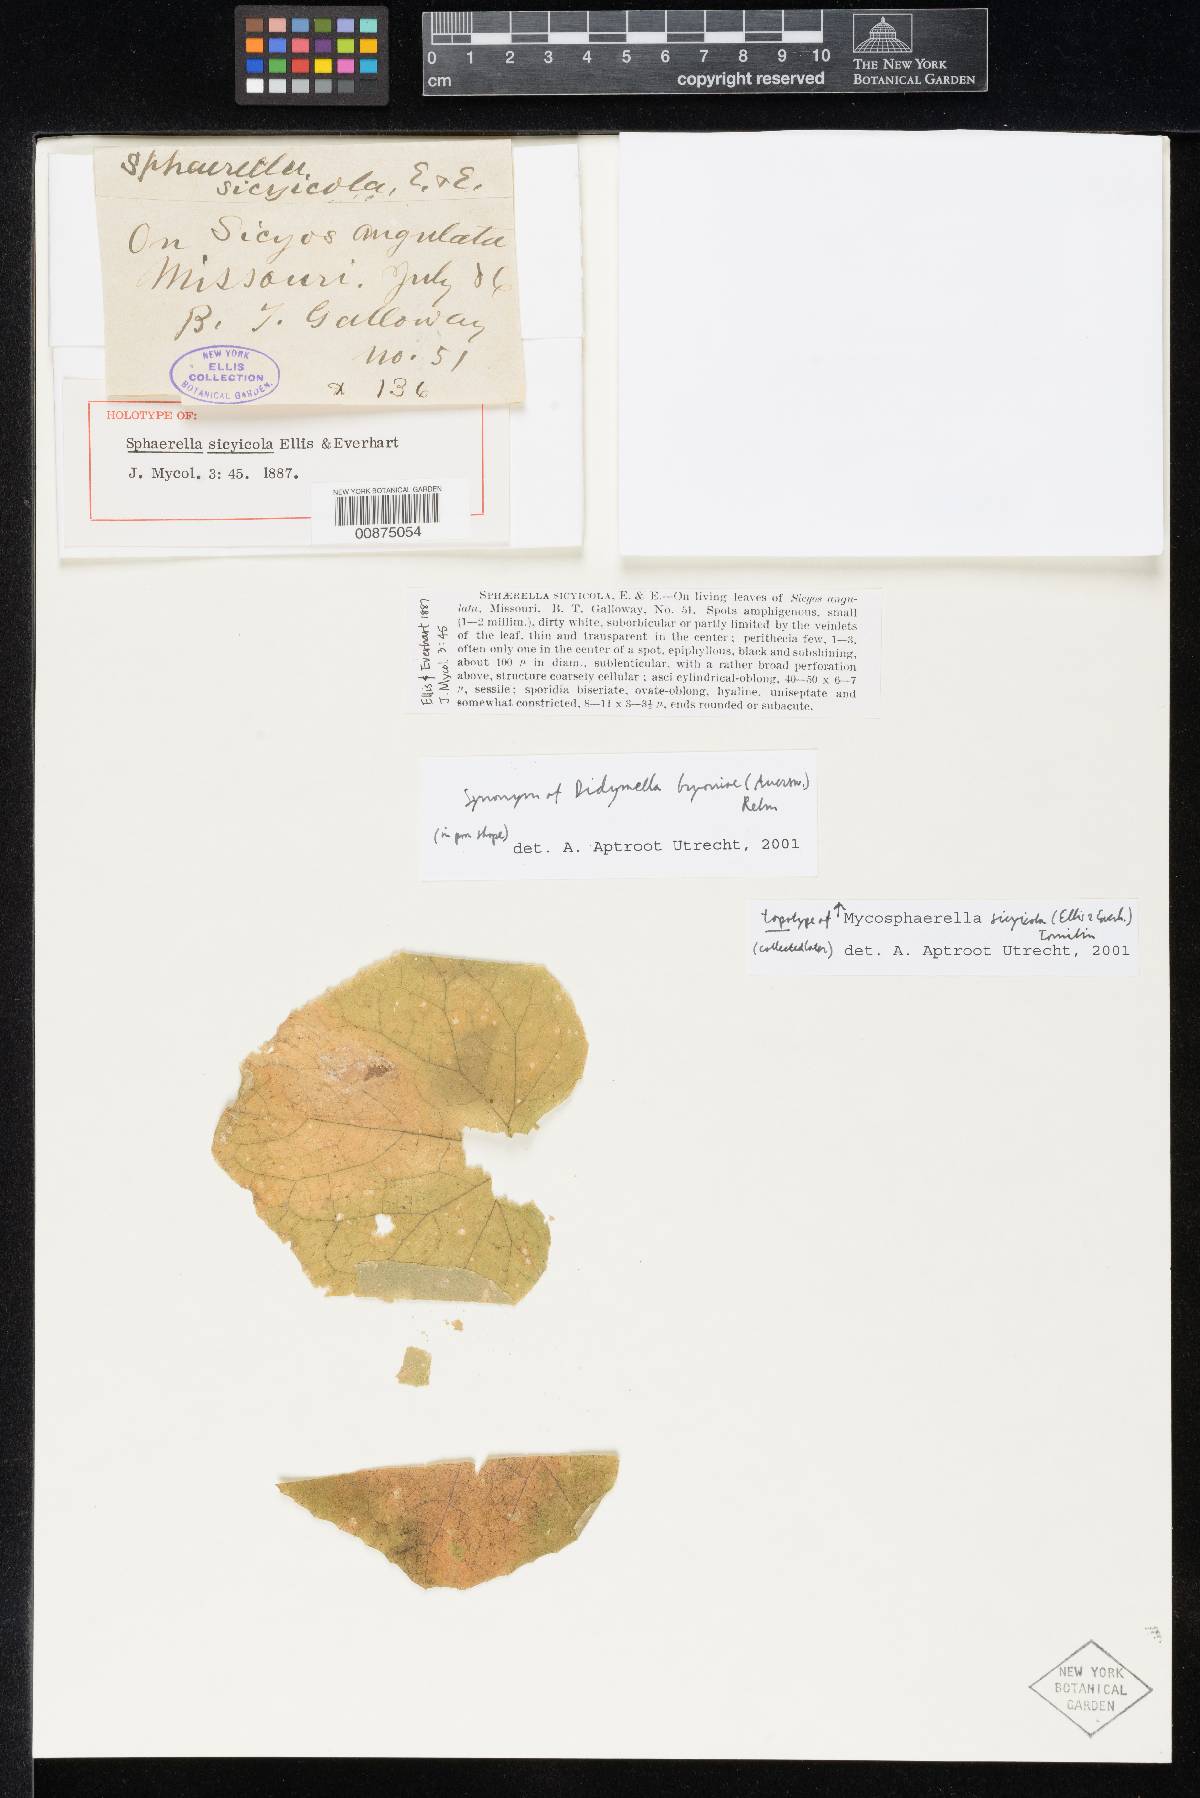 0 1 2 3 4 5 6 7 8 9 10
cm
copyright reserved
THE NEW YORK
BOTANICAL GARDEN
Sphaerella
sicyicola, E. & E.
On Sicyos angulata
Missouri. July 86
B. T. Galloway
No. 51
136
NEW YORK
ELLIS
COLLECTION
BOTANICAL GARDEN.
HOLOTYPE OF:
Sphaerella sicyicola Ellis & Everhart
J. Mycol. 3: 45. 1887.
NEW YORK BOTANICAL GARDEN
00875054
Ellis & Everhart 1887
J. Mycol. 3: 45
SPHÆRELLA SICYICOLA, E. & E.—On living leaves of Sicyos angu-
lata, Missouri. B. T. Galloway, No. 51. Spots amphigenous, small
(1—2 millim.), dirty white, suborbicular or partly limited by the veinlets
of the leaf, thin and transparent in the center; perithecia few, 1—3,
often only one in the center of a spot, epiphyllous, black and subshining,
about 100 µ in diam., sublenticular, with a rather broad perforation
above, structure coarsely cellular; asci cylindrical-oblong, 40—50 x 6—7
µ, sessile; sporidia biseriate, ovate-oblong, hyaline, uniseptate and
somewhat constricted, 8—11 x 3—3½ µ, ends rounded or subacute.
Synonym of Didymella bryoniae (Auersw.)
Rehm
det. A. Aptroot Utrecht, 2001
topotype of ↑ Mycosphaerella sicyicola (Ellis & Everh.)
Tomilin
(collected later) det. A. Aptroot Utrecht, 2001
NEW YORK
BOTANICAL
GARDEN